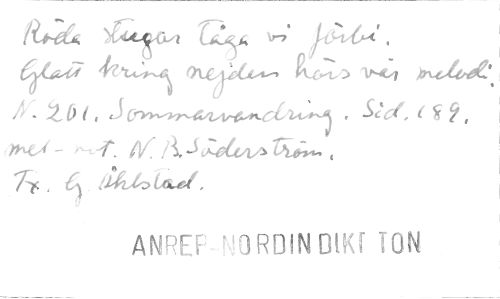 Röda stugor tåga vi förbi.
Glatt kring nejden hörs vår melodi.
N. 201. Sommarvandring. Sid. 189.
mel - N. B. Söderström.
Tx. G Åhlstad.
ANREP-NORDIN DIKT TON